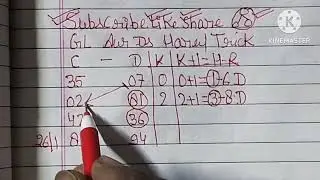 Subscribe Like Share 28
KINEMASTER
Gl Aur Ds Haruf Trick
C - D K K+1=H-R
35 07 0 0+1=1-6.D
02 81 2 2+1=3-8.D
47 36
26/1 A 94